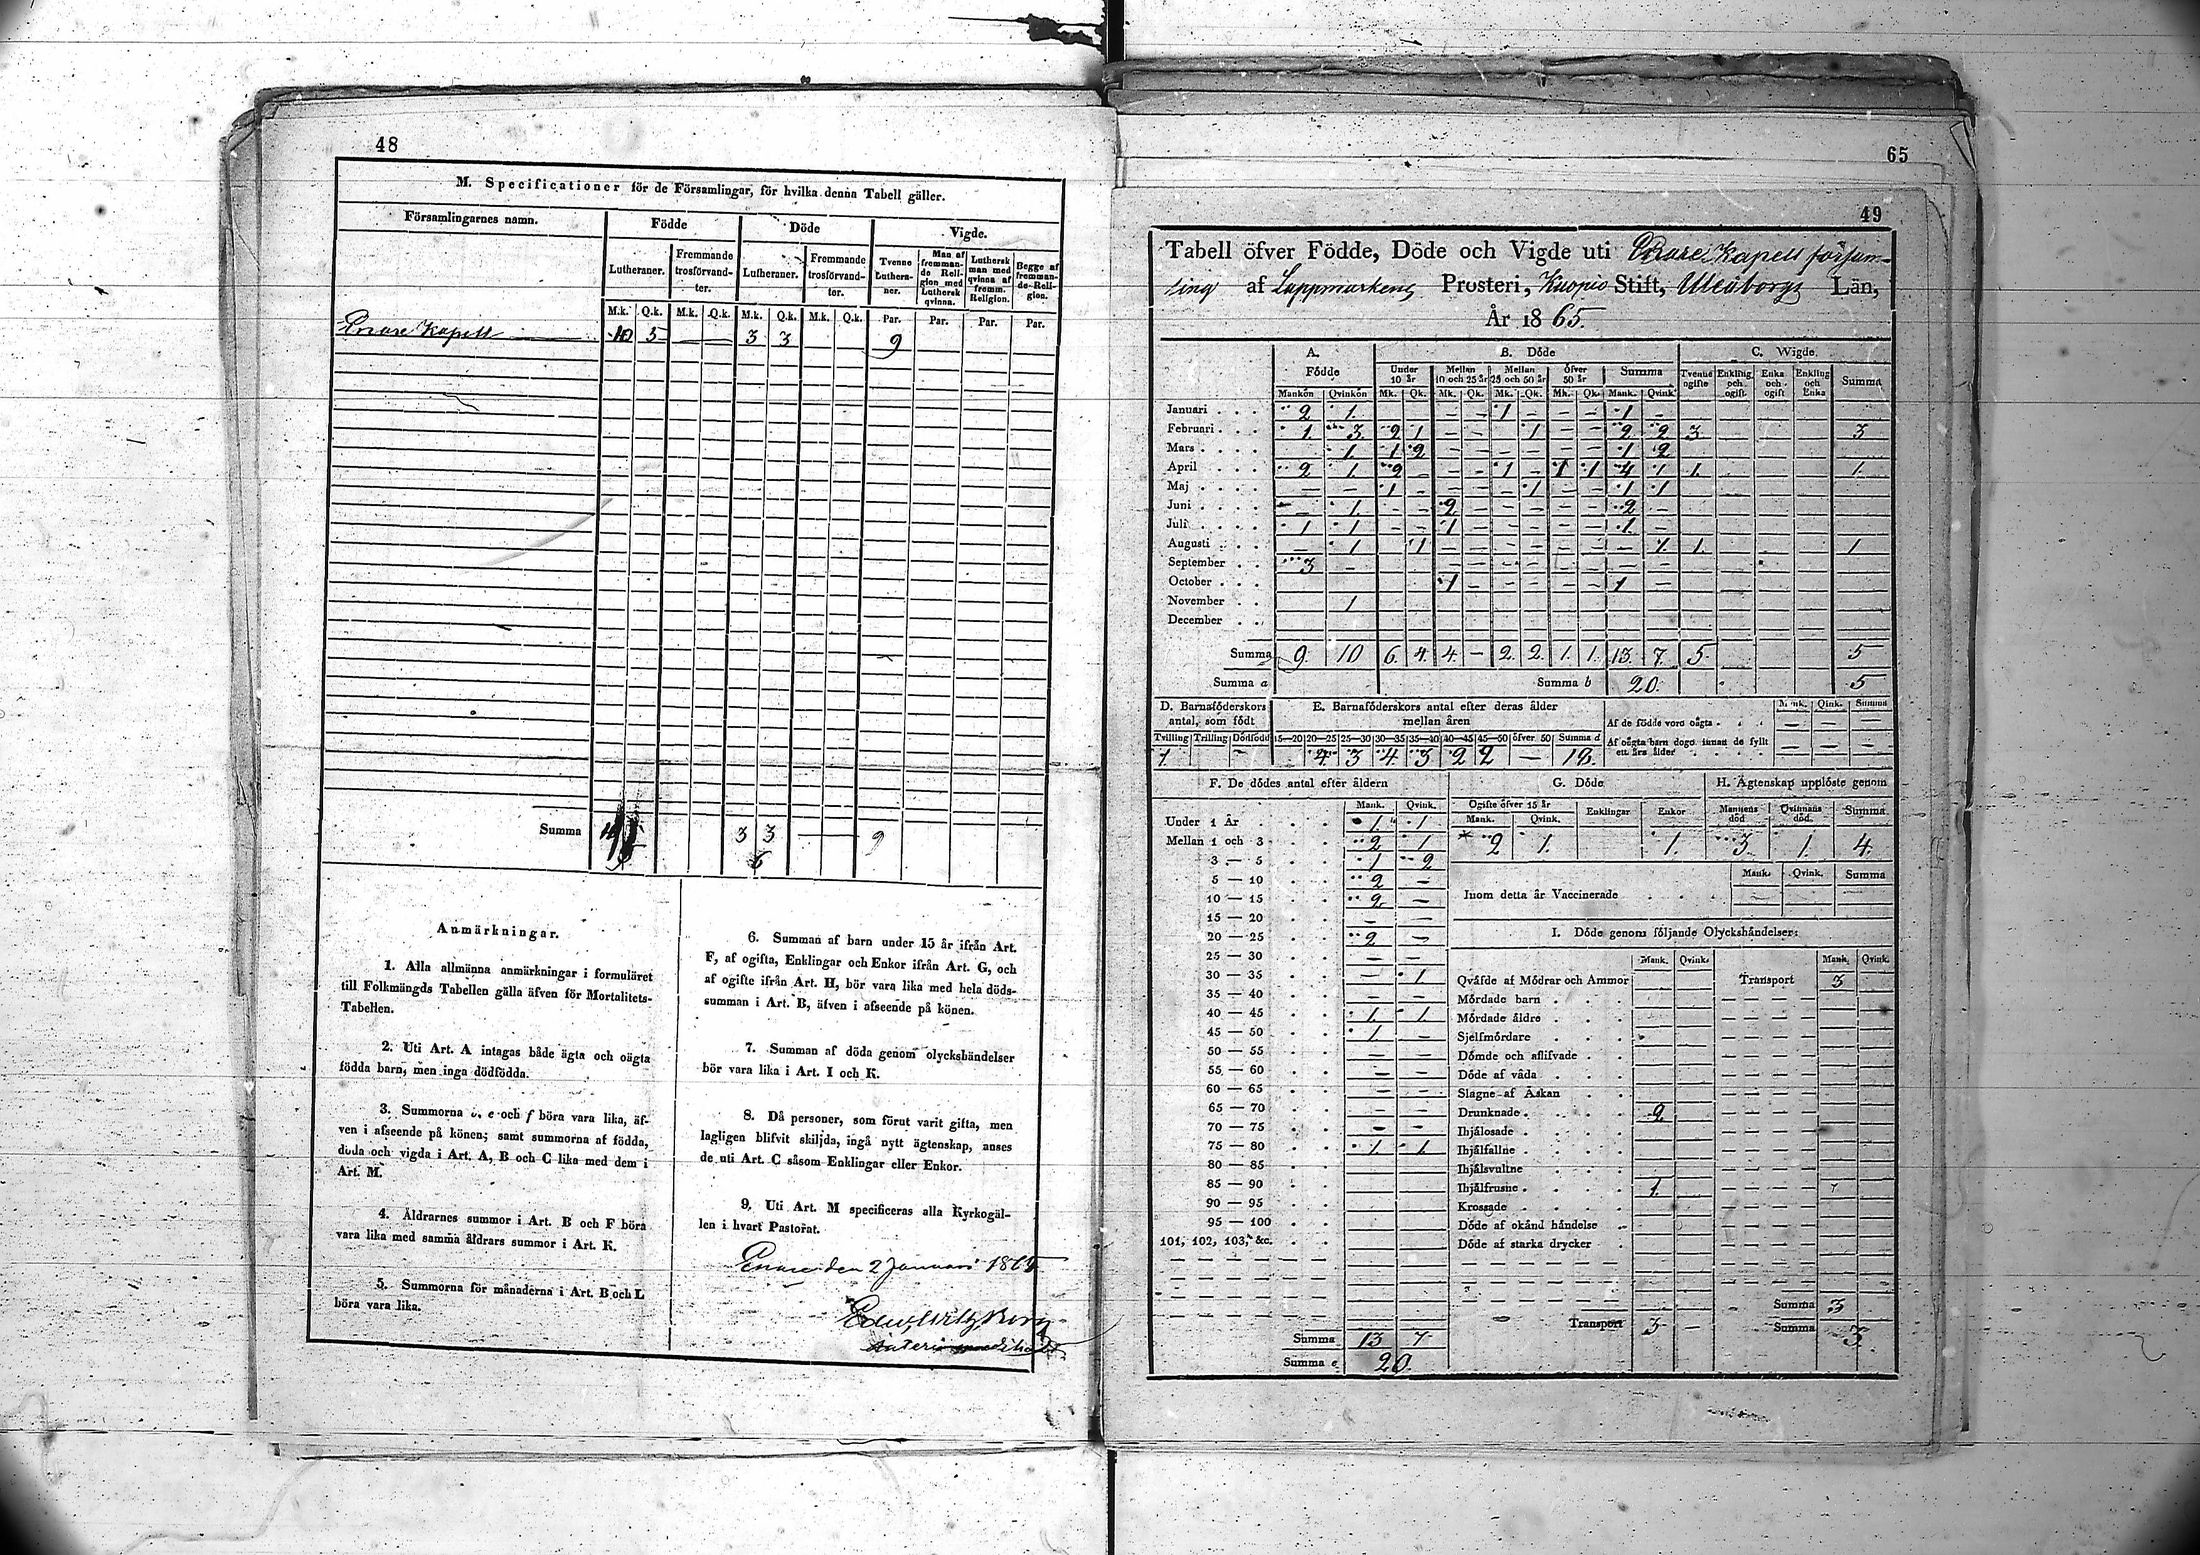 48
M. Specificationer för de Församlingar, för hvilka denna Tabell gäller.
Församlingarnes namn. Födde Döde Vigde.
Lutheraner. Fremmande trosförvandter. Lutheraner. Fremmande trosförvandter. Tvenne Lutheraner. Man af fremmande Religion med Luthersk qvinna. Luthersk man med qvinna af fremm. Religion. Begge af fremmande Religion.
M.k. Q.k. M.k. Q.k. M.k. Q.k. M.k. Q.k. Par. Par. Par. Par.
Enare Kapell 10 5 3 3 9
Summa 3 3 9
6
Anmärkningar.
1. Alla allmänna anmärkningar i formuläret
till Folkmängds Tabellen gälla äfven för Mortalitets-
Tabellen.
2. Uti Art. A intagas både ägta och oägta
födda barn, men inga dödfödda.
3. Summorna b, e och f böra vara lika, äf-
ven i afseende på könen; samt summorna af födda,
döda och vigda i Art. A, B och C lika med dem i
Art. M.
4. Åldrarnes summor i Art. B och F böra
vara lika med samma åldrars summor i Art. K.
5. Summorna för månaderna i Art. B och L
böra vara lika.
6. Summan af barn under 15 år ifrån Art.
F, af ogifta, Enklingar och Enkor ifrån Art. G, och
af ogifte ifrån Art. H, bör vara lika med hela döds-
summan i Art. B, äfven i afseende på könen.
7. Summan af döda genom olyckshändelser
bör vara lika i Art. I och K.
8. Då personer, som förut varit gifta, men
lagligen blifvit skiljda, ingå nytt ägtenskap, anses
de uti Art. C såsom Enklingar eller Enkor.
9. Uti Art. M specificeras alla Kyrkogäl-
len i hvart Pastorat.
Enare den 2 Januari 1865
65
49
Tabell öfver Födde, Döde och Vigde uti Enare Kapell försam-
ling af Lappmarkens Prosteri, Kuopio Stift, Uleåborgs Län,
År 1865.
A. Födde B. Döde C. Wigde.
Under 10 år Mellan 10 och 25 år Mellan 25 och 50 år öfver 50 år Summa Tvenne ogifte Enkling och ogift. Enka och ogift Enkling och Enka Summa
Mankön Qvinkön Mk. Qk. Mk. Qk. Mk. Qk. Mk. Qk. Mank. Qvink.
Januari 2 1. – – 1 – – – 1 –
Februari 1. 3. 2 1 – – 1 – – 2 2 3. 3
Mars 1. 1 2 1 2
April 2 1. 2 – – – 1 – 1 1 4 1 1. 1.
Maj – – 1 – – – – 1 – – 1 1
Juni – 1. – – 2 – – – – – 2 –
Juli 1 1 – – 1 – – – – – 1 –
Augusti – 1 1 – – – – – – – 1. 1. 1
September 3 – – – – – – – – –
October 1 – – – – – 1 –
November 1
December
Summa 9. 10 6. 4. 4. – 2. 2. 1. 1. 13. 7. 5. 5
Summa a Summa b 20. 5
D. Barnaföderskors antal, som födt
E. Barnaföderskors antal efter deras ålder mellan åren
Mank. Qink. Summa
Af de födde voro oägta – – –
Af oägta barn dogo innan de fyllt ett års ålder – – –
Tvilling Trilling Dödfödd 15–20 20–25 25–30 30–35 35–40 40–45 45–50 öfver 50 Summa d
1 – 4 3 4 3 2 2 – 18.
F. De dödes antal efter åldern
Mank. Qvink.
Under 1 År 1. 1
Mellan 1 och 3 2 1
3 — 5 1 2
5 — 10 2 –
10 — 15 2 –
15 — 20 – –
20 — 25 2 –
25 — 30 – –
30 — 35 – 1
35 — 40 – –
40 — 45 1. 1.
45 — 50 1. –
50 — 55 – –
55 — 60 – –
60 — 65 – –
65 — 70 – –
70 — 75 – –
75 — 80 1. 1.
80 — 85
85 — 90
90 — 95
95 — 100
101, 102, 103, &c.
Summa 13 7
Summa e 20.
G. Döde
Ogifte öfver 15 år Enklingar Enkor
Mank. Qvink.
2 1. 1.
H. Ägtenskap upplöste genom
Mannens död Qvinnans död. Summa
3. 1. 4.
Mank. Qvink. Summa
Inom detta år Vaccinerade – – –
I. Döde genom följande Olyckshändelser:
Mank. Qvink. Mank. Qvink.
Qväfde af Mödrar och Ammor Transport 3
Mördade barn
Mördade äldre
Sjelfmördare
Dömde och aflifvade
Döde af våda
Slagne af Åskan
Drunknade 2
Ihjälosade
Ihjälfallne
Ihjälsvultne
Ihjälfrusne 1.
Krossade
Döde af okänd händelse
Döde af starka drycker
Summa 3
Transport 3 – Summa 3.